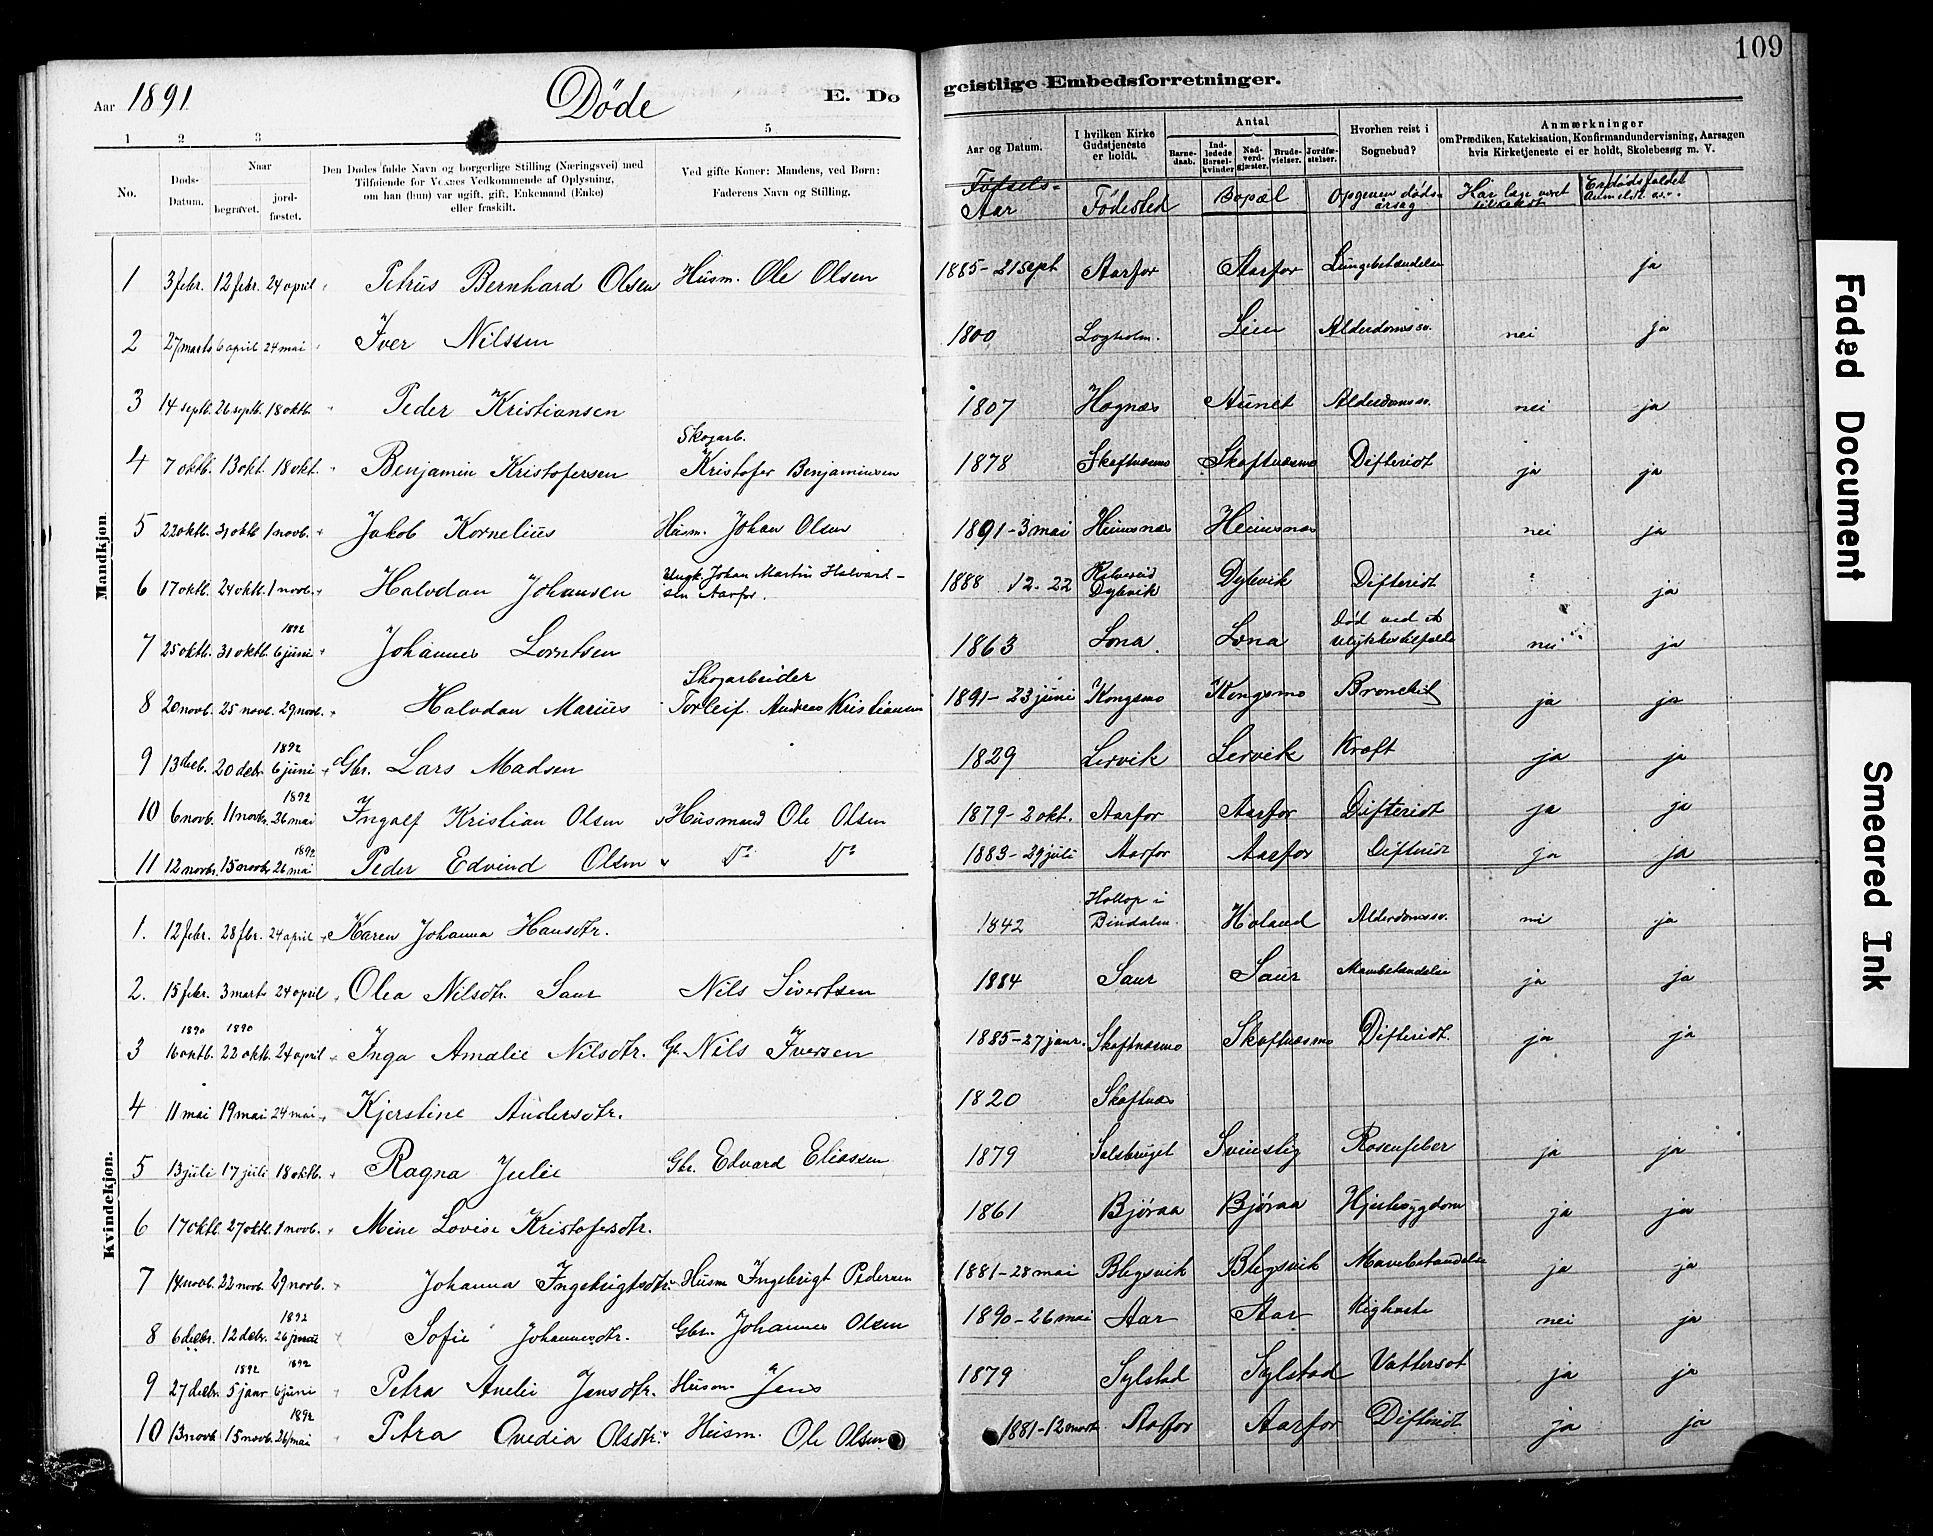 109
Aar 1891. Døde E. Do
geistlige Embedsforretninger.
1 2 3 5
No. Døds-Datum. Naar begravet. jord-fæstet. Den Dødes fulde Navn og borgerlige Stilling (Næringsvei) med Tilføiende for Voxnes Vedkommende af Oplysning, om han (hun) var ugift, gift, Enkemand (Enke) eller fraskilt. Ved gifte Koner: Mandens, ved Børn: Faderens Navn og Stilling.
Aar og Datum. I hvilken Kirke Gudstjeneste er holdt. Antal Barne-daab. Ind-ledede Barsel-kvinder Nad-verd-gjæster. Brude-vielser. Jordfæ-stelser. Hvorhen reist i Sognebud? Anmærkninger om Prædiken, Katekisation, Konfirmandundervisning, Aarsagen hvis Kirketjeneste ei er holdt, Skolebesøg m. V.
Fødsels-Aar Fødested Bopæl Opgiven døds-årsag Har læge været tilkaldt Er dødsfaldet Anmeldt
Mandkjøn.
1 3 febr. 12 febr. 24 april Petrus Bernhard Olsen Husm. Ole Olsen 1885-21 sept Aarfor Aarfor Lungebetændelse ja
2 27 marts 6 april 24 mai Iver Nilssen 1800 Logholm. Lien Alderdomssv. nei ja
3 14 septb. 26 septb. 18 oktb. Peder Kristiansen 1807 Hognæs Aunet Alderdomssv. nei ja
4 7 oktb. 13 okt. 18 okt. Benjamin Kristofersen Skogarb. Kristofer Benjaminsen 1878 Skaftnæsmo Skaftnæsmo Difteridt ja ja
5 22 oktb. 31 oktb 1 novb. Jakob Kornelius Husm. Johan Olsen 1891-3 mai Heimsnæs Heimsnæs nei ja
6 17 oktb. 24 oktb. 1 novb. Halvdan Johansen Ungk. Johan Martin Halvard-sen Aarfor. 1888 12-22 Kalvereid Dybvik Dybvik Difteridt ja
7 25 oktb. 31 oktb. 1892 6 juni Johannes Lorntsen 1863 Lona Lona Død ved et ulykkestilfælde nei ja
8 20 novb. 25 novb. 29 novb. Halvdan Marius Skogarbeider Torleif Andreas Kristiansen 1891-23 juni Kongsmo Kongsmo Bronchit ja ja
9 13 deb. 20 debr. 1892 6 juni Gbr. Lars Madsen 1829 Lervik Lervik Kræft ja ja
10 6 novb. 11 novbr. 1892 26 mai Ingolf Kristian Olsen Husmand Ole Olsen 1879-2 okt. Aarfor Aarfor Difteridt ja ja
11 12 novbr. 15 novbr 1892 26 mai Peder Edvind Olsen Do Do 1883-29 juli Aarfor Aarfor Difteridt ja ja
Kvindekjøn.
1. 12 febr. 28 fbr. 24 april Karen Johanna Hansdtr. 1842 Hollop i Bindalen. Holand Alderdomssv. nei ja
2. 15 febr. 3 marts 24 april Olea Nilsdtr. Saur Nils Sivertsen 1884 Saur Saur Mavebetændelse ja ja
3 1890 16 oktb. 1890 22 oktb. 24 april Inga Amalie Nilsdtr. G. Nils Iversen 1885-27 janr. Skaftnæsmo Skaftnæsmo Difteridt. ja ja
4 11 mai 19 mai 24 mai Kjerstine Andersdtr. 1820 Skaftnæs
5 13 juli 17 juli 18 oktb. Ragna Julie Gbr. Edvard Eliassen 1879 Salsbruget Svinslig Rosenfeber ja ja
6 17 oktb. 27 oktb. 1 novb. Meine Lovise Kristofersdtr. 1861 Bjøraa Bjøraa Hjertesygdom ja ja
7 14 novb. 22 novb. 29 novb. Johanna Ingebrigtsdtr. Husm Ingebrigt Pedersen 1881-28 mai Blegsvik Blegsvik Mavebetændelse ja ja
8 6 decbr. 12 debr. 1892 26 mai Sofie Johannesdtr. Gbr. Johannes Olsen 1890-26 mai Aar Aar Kighoste nei ja
9 27 decbr. 1892 5 janr 1892 6 juni Petra Anelie Jensdtr. Husm Jens 1879 Sylstad Sylstad Vattersot ja ja
10 13 novb. 15 novb. 1892 26 mai Petra Ovedia Olsdtr. Husm. Ole Olsen 1881-12 Aarfor Aarfor Difteridt ja ja
Faded Document
Smeared Ink